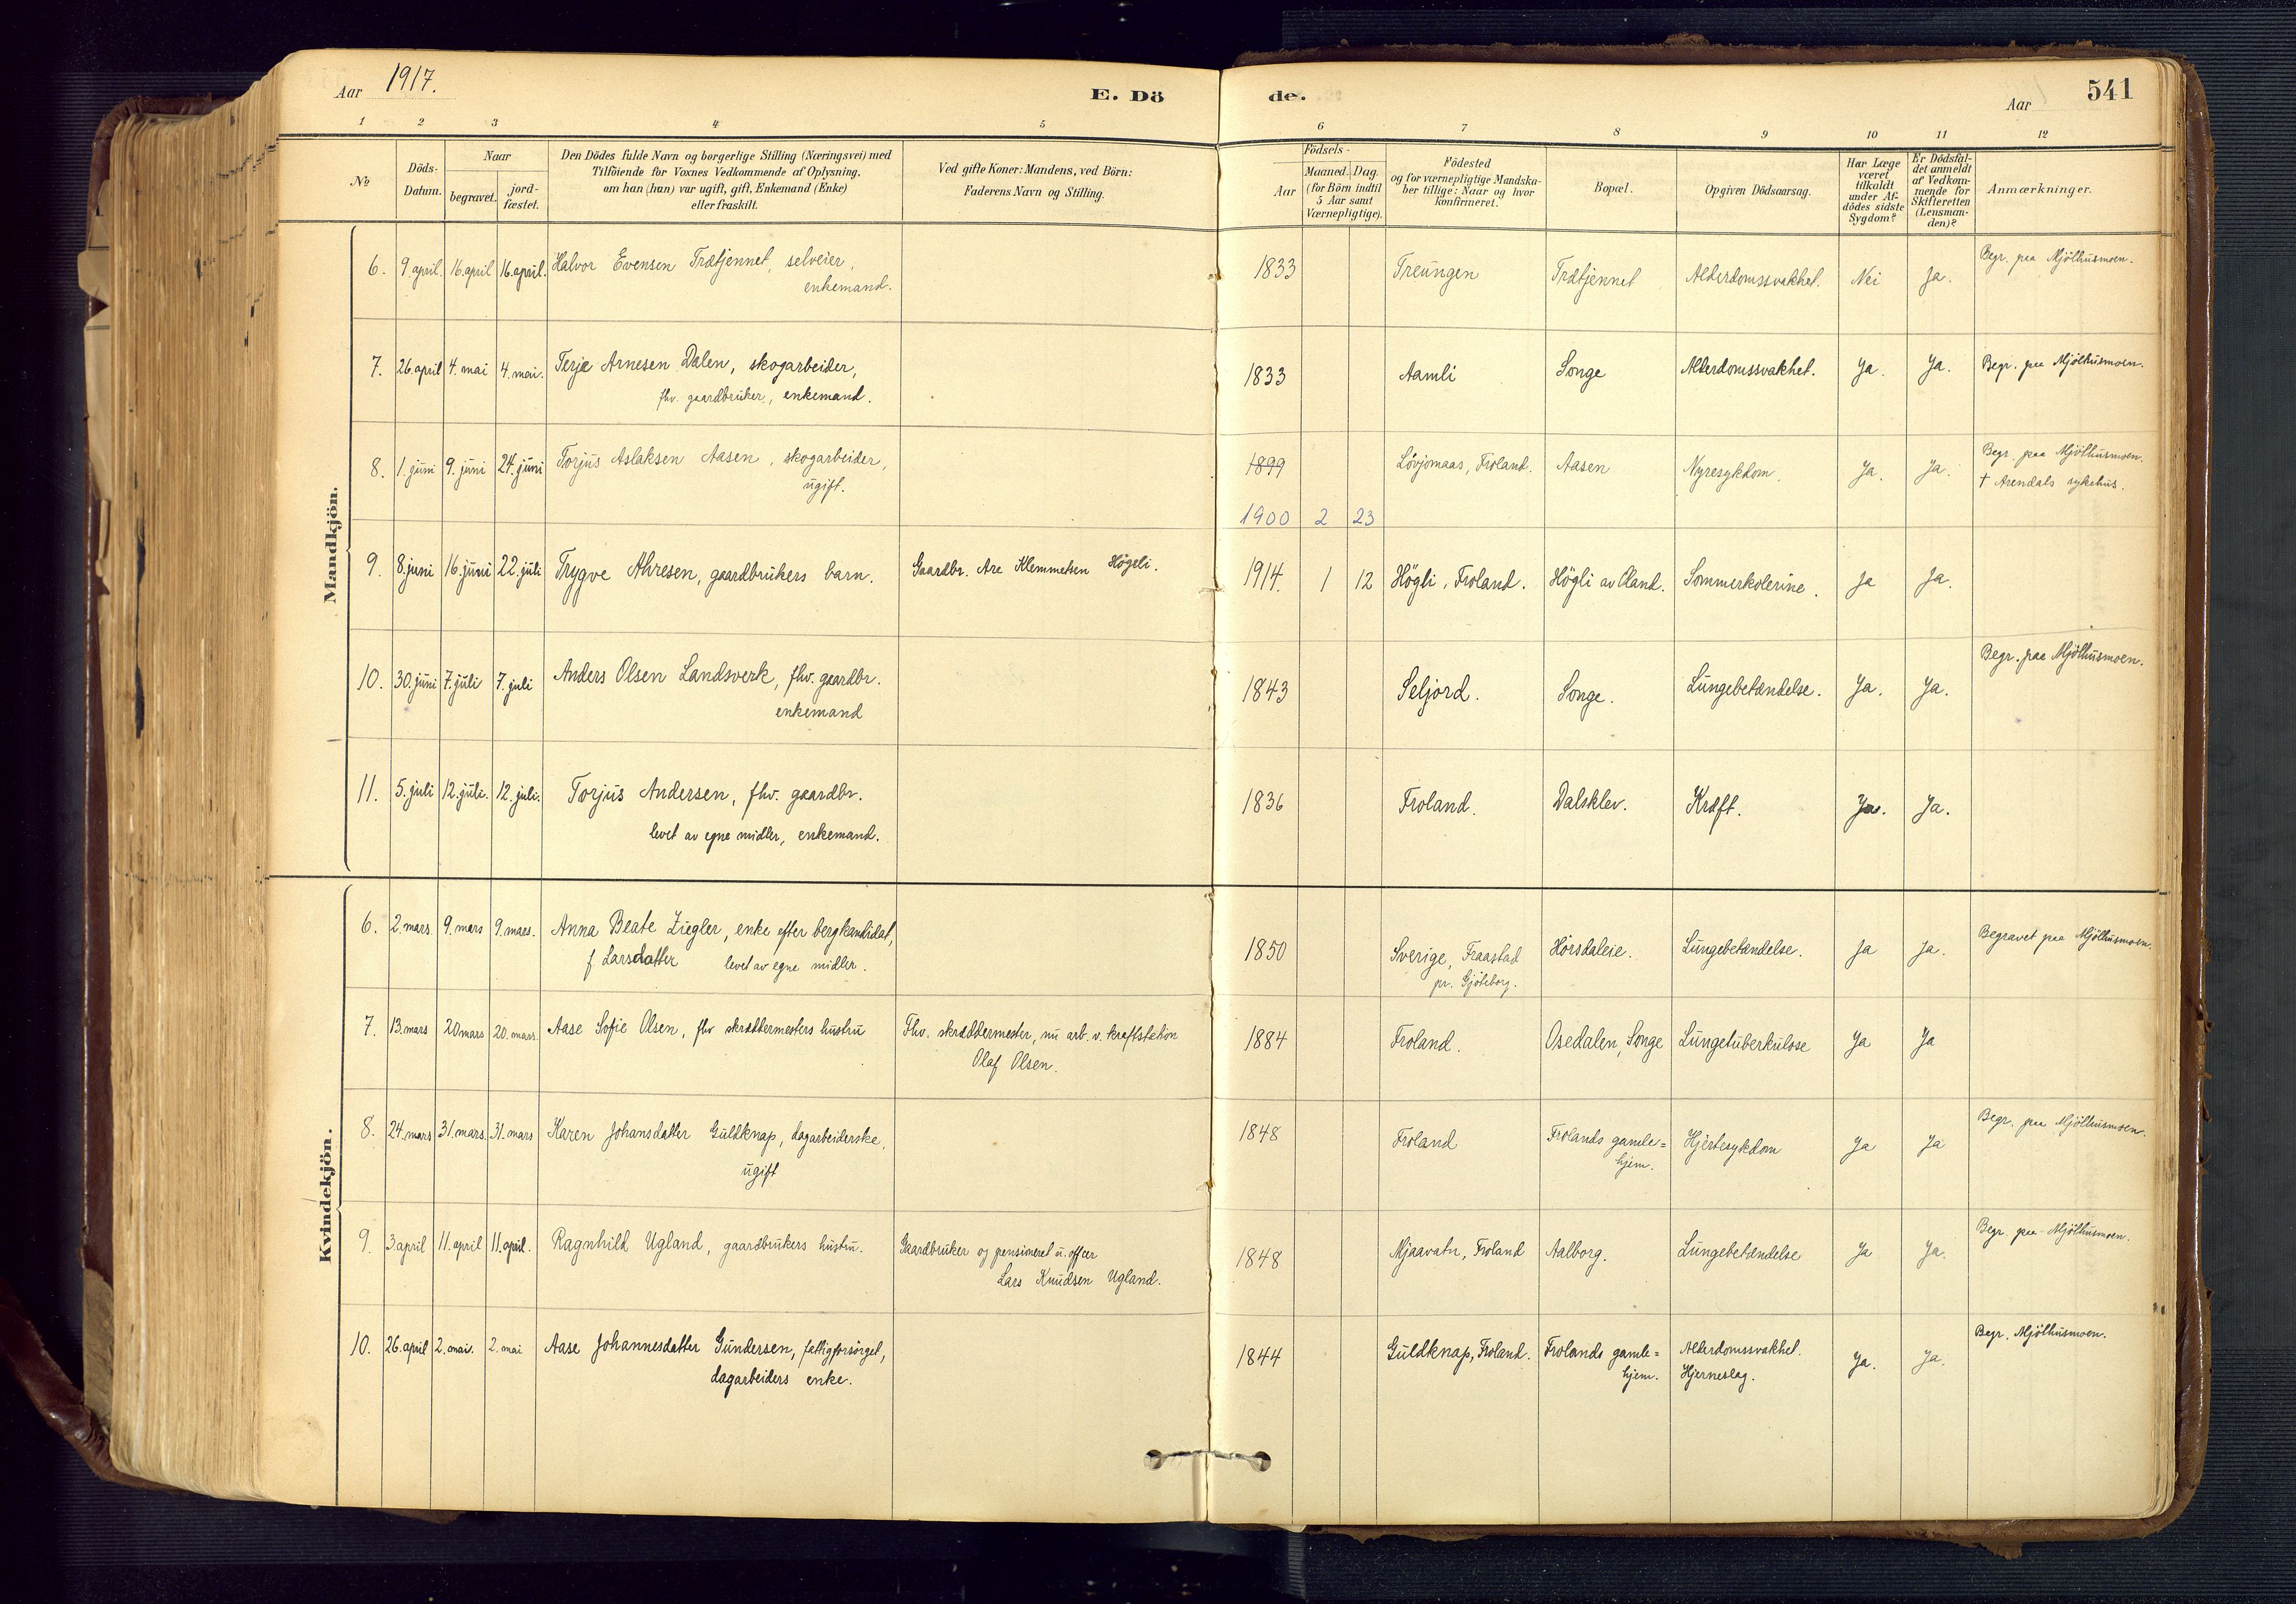 Aar 1917. E. Döde. Aar 541
1 2 3 4 5 6 7 8 9 10 11 12
№
Döds-Datum.
Naar
begravet.
jord-fæstet.
Den Dödes fulde Navn og borgerlige Stilling (Næringsvei) med
Tilföiende for Voxnes Vedkommende af Oplysning.
om han (hun) var ugift, gift, Enkemand (Enke)
eller fraskilt.
Ved gifte Koner: Mandens, ved Börn:
Faderens Navn og Stilling.
Födsels-
Aar
Maaned. Dag.
(for Börn indtil
5 Aar samt
Værnepligtige).
Födested
og for værnepligtige Mandska-
ber tillige: Naar og hvor
konfirmeret.
Bopæl.
Opgiven Dödsaarsag.
Har Læge
været
tilkaldt
under Af-
dödes sidste
Sygdom?
Er Dödsfal-
det anmeldt
af Vedkom-
mende for
Skifteretten
(Lensman-
den)?
Anmærkninger.
Mandkjön.
6. 9. april. 16. april 16. april. Halvor Evensen Trætjennet, selveier, 1833 Treungen Trætjennet Alderdomssvakhet. Nei Ja. Begr. paa Mjölhusmoen.
enkemand.
7. 26. april 4. mai 4. mai. Terje Arnesen Dalen, skogarbeider, 1833 Aamli Songe Alderdomssvakhet. Ja. Ja. Begr. paa Mjölhusmoen.
fhv. gaardbruker, enkemand.
8. 1. juni 9. juni 24. juni Torjus Aslaksen Aasen, skogarbeider, 1899 Lövjomaas, Froland. Aasen Nyresykdom. Ja. Ja. Begr. paa Mjölhusmoen.
ugift. † Arendals sykehus.
1900 2 23
9. 8. juni 16. juni 22. juli Trygve Ahresen, gaardbrukers barn. Gaardbr. Are Klemmetsen Högeli. 1914. 1 12 Högli, Froland. Högli av Öland. Sommerkolerine. Ja Ja.
10. 30. juni 7. juli 7. juli Anders Olsen Landsverk, fhv. gaardbr. 1843 Seljord. Songe. Lungebetændelse. Ja. Ja. Begr. paa Mjölhusmoen.
enkemand
11. 5. juli 12. juli. 12. juli. Torjus Andersen, fhv. gaardbr. 1836 Froland. Dalsklev. Kræft. Ja. Ja.
levet av egne midler, enkemand.
Kvindekjön.
6. 2. mars. 9. mars 9. mars. Anna Beate Ziegler, enke efter bergkandidat, 1850 Sverige, Fraastad Hörsdaleie. Lungebetændelse. Ja Ja. Begravet paa Mjölhusmoen.
f Larsdatter levet av egne midler. pr. Gjöteborg.
7. 13. mars 20 mars 20. mars. Aase Sofie Olsen, fhv skræddermesters hustru Fhv. skræddermester, nu arb. v. kraftstation 1884 Froland. Osedalen, Songe Lungetuberkulose Ja Ja
Olaf Olsen.
8. 24. mars 31. mars. 31. mars Karen Johansdatter Guldknap, dagarbeiderske, 1848 Froland Frolands gamle= Hjertesykdom Ja Ja Begr. paa Mjölhusmoen.
ugift hjem.
9. 3. april 11. april 11. april. Ragnhild Ugland, gaardbrukers hustru. Gaardbruker og pensioneret u. offcer 1848 Mjaavatn, Froland Aalborg. Lungebetændelse Ja Ja. Begr. paa Mjölhusmoen.
Lars Knudsen Ugland.
10. 26. april 2. mai. 2. mai Aase Johannesdatter Gundersen, fattigforsörget, 1844 Guldknap, Froland. Frolands gamle= Alderdomssvakhet. Ja. Ja. Begr. Mjölhusmoen.
dagarbeiders enke. hjem. Hjerneslag.